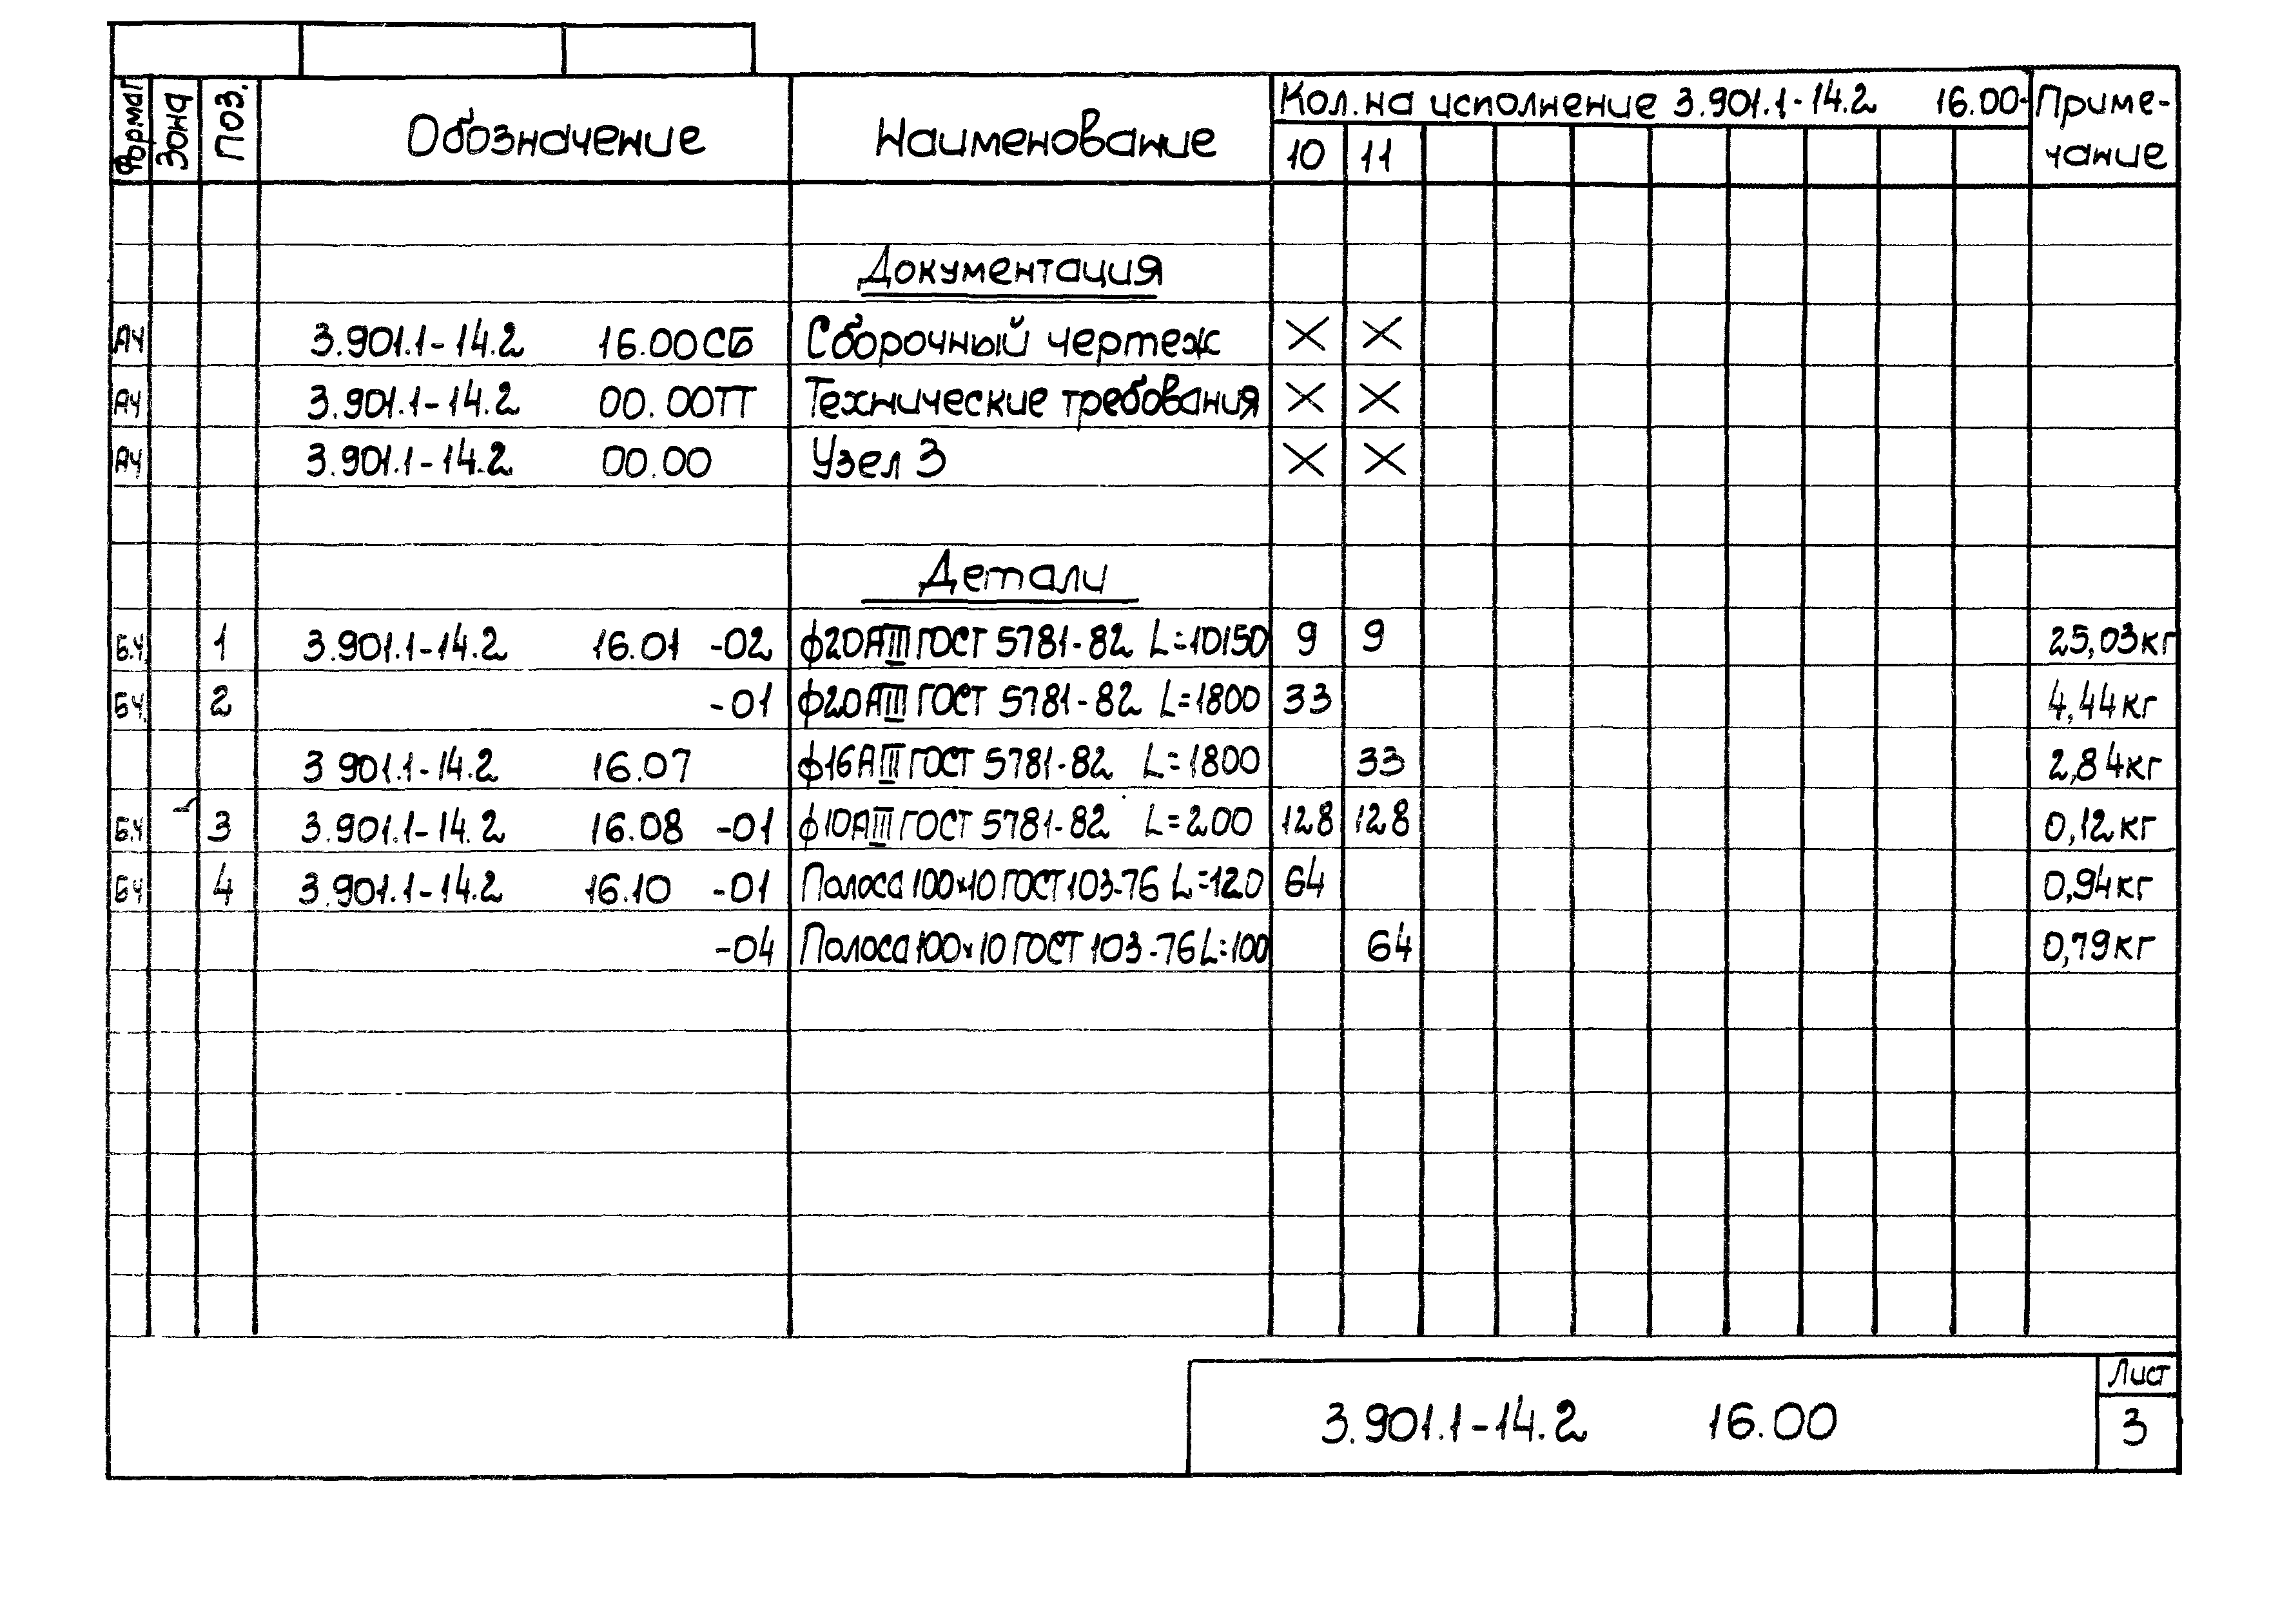 Формат Зона Поз. Обозначение Наименование Кол. на исполнение 3.901.1-14.2 16.00- Приме-
10 11 чание
Документация
А4 3.901.1-14.2 16.00СБ Сборочный чертеж × ×
А4 3.901.1-14.2 00.00ТТ Технические требования × ×
А4 3.901.1-14.2 00.00 Узел 3 × ×
Детали
Б.Ч. 1 3.901.1-14.2 16.01 -02 ф20АIII ГОСТ 5781-82 L=10150 9 9 25,03кг
БЧ. 2 -01 ф20АIII ГОСТ 5781-82 L=1800 33 4,44кг
3 901.1-14.2 16.07 ф16АIII ГОСТ 5781-82 L=1800 33 2,84кг
Б.Ч 3 3.901.1-14.2 16.08 -01 ф10АIII ГОСТ 5781-82 L=200 128 128 0,12кг
БЧ 4 3.901.1-14.2 16.10 -01 Полоса 100×10 ГОСТ 103-76 L=120 64 0,94кг
-04 Полоса 100×10 ГОСТ 103-76 L=100 64 0,79кг
Лист
3.901.1-14.2 16.00 3